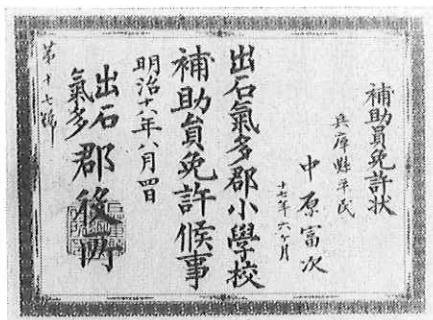 補助員免許状
兵庫縣平民
中原富次
十七年六ヶ月
出石氣多郡小學校
補助員免許候事
明治十八年八月四日
出石氣多郡役所
第十七號